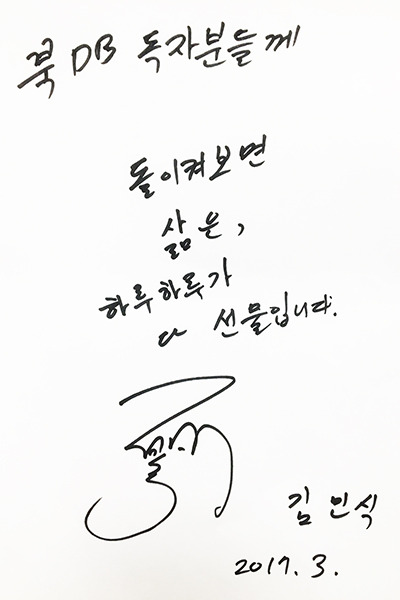 북DB 독자분들께
돌이켜보면
삶은,
하루하루가
다 선물입니다.
김인식
2017. 3.